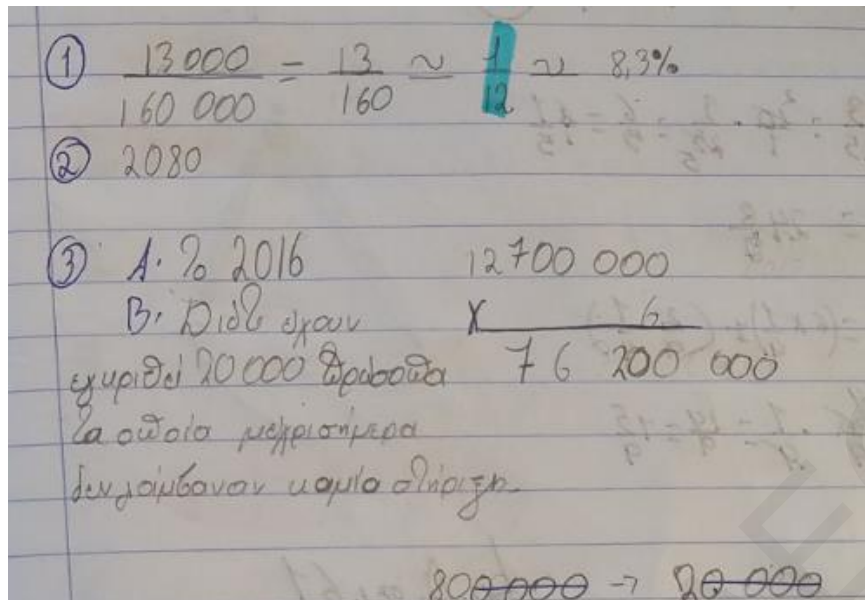 ① 13000/160 000 = 13/160 ≃ 1/12 ≃ 8,3%
② 2080
③ A. Το 2016
B. Διότι έχουν
εγκριθεί 20000 πρόσωπα
τα οποία μέχρι σήμερα
δεν λάμβαναν καμία στήριξη.
12700 000
x 6
76 200 000
800000 → 20 000